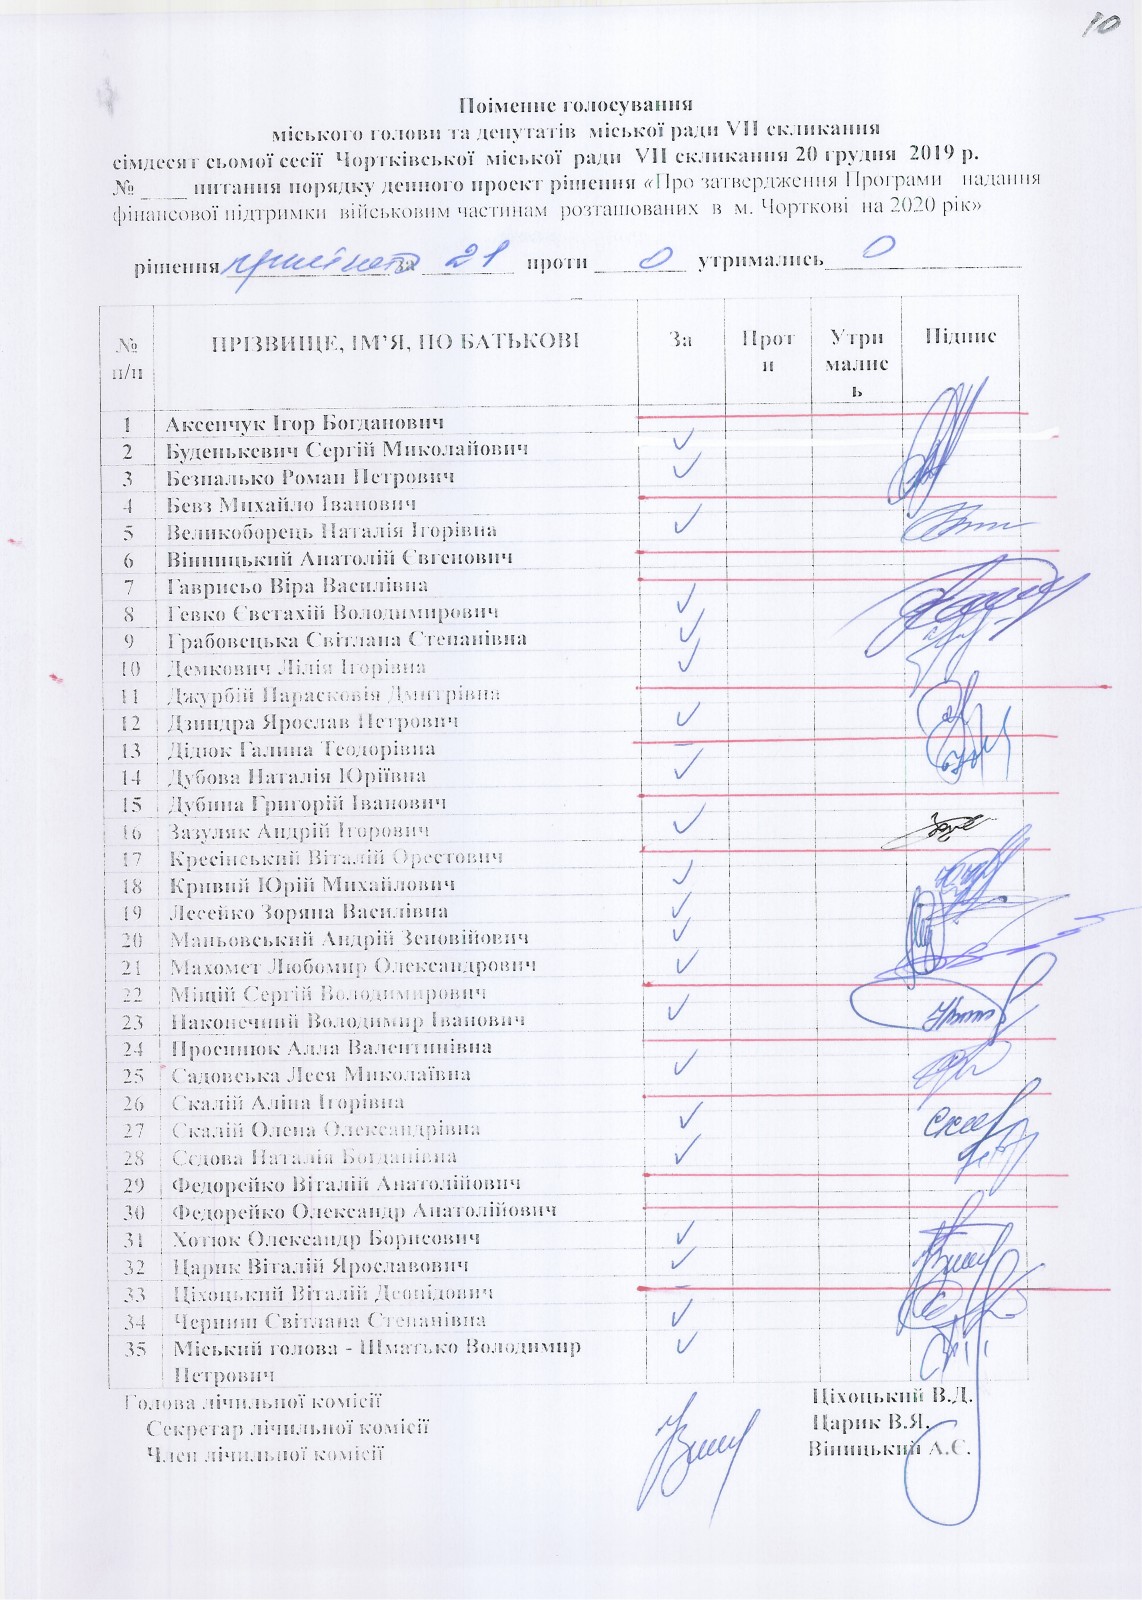 10
Поіменне голосування
міського голови та депутатів міської ради VII скликання
сімдесят сьомої сесії Чортківської міської ради VII скликання 20 грудня 2019 р.
№_____ питання порядку денного проект рішення «Про затвердження Програми надання
фінансової підтримки військовим частинам розташованих в м. Чорткові на 2020 рік»
рішення прийнято за 21 проти 0 утримались 0
№ п/п ПРІЗВИЩЕ, ІМ’Я, ПО БАТЬКОВІ За Проти Утримались Підпис
1 Аксенчук Ігор Богданович
2 Буденькевич Сергій Миколайович ✓
3 Безпалько Роман Петрович ✓
4 Бевз Михайло Іванович
5 Великоборець Наталія Ігорівна ✓
6 Вінницький Анатолій Євгенович
7 Гаврисьо Віра Василівна
8 Гевко Євстахій Володимирович ✓
9 Грабовецька Світлана Степанівна ✓
10 Демкович Лілія Ігорівна ✓
11 Джурбій Парасковія Дмитрівна
12 Дзиндра Ярослав Петрович ✓
13 Дідюк Галина Теодорівна
14 Дубова Наталія Юріївна ✓
15 Дубина Григорій Іванович
16 Зазуляк Андрій Ігорович ✓
17 Кресінський Віталій Орестович
18 Кривий Юрій Михайлович ✓
19 Лесейко Зоряна Василівна ✓
20 Маньовський Андрій Зеновійович ✓
21 Махомет Любомир Олександрович ✓
22 Міщій Сергій Володимирович
23 Наконечний Володимир Іванович ✓
24 Просинюк Алла Валентинівна
25 Садовська Леся Миколаївна ✓
26 Скалій Аліна Ігорівна
27 Скалій Олена Олександрівна ✓
28 Сєдова Наталія Богданівна ✓
29 Федорейко Віталій Анатолійович
30 Федорейко Олександр Анатолійович
31 Хотюк Олександр Борисович ✓
32 Царик Віталій Ярославович ✓
33 Ціхоцький Віталій Деонідович
34 Черниш Світлана Степанівна ✓
35 Міський голова - Шматько Володимир
Петрович ✓
Голова лічильної комісії Ціхоцький В.Д.
Секретар лічильної комісії Царик В.Я.
Член лічильної комісії Вінницький А.Є.